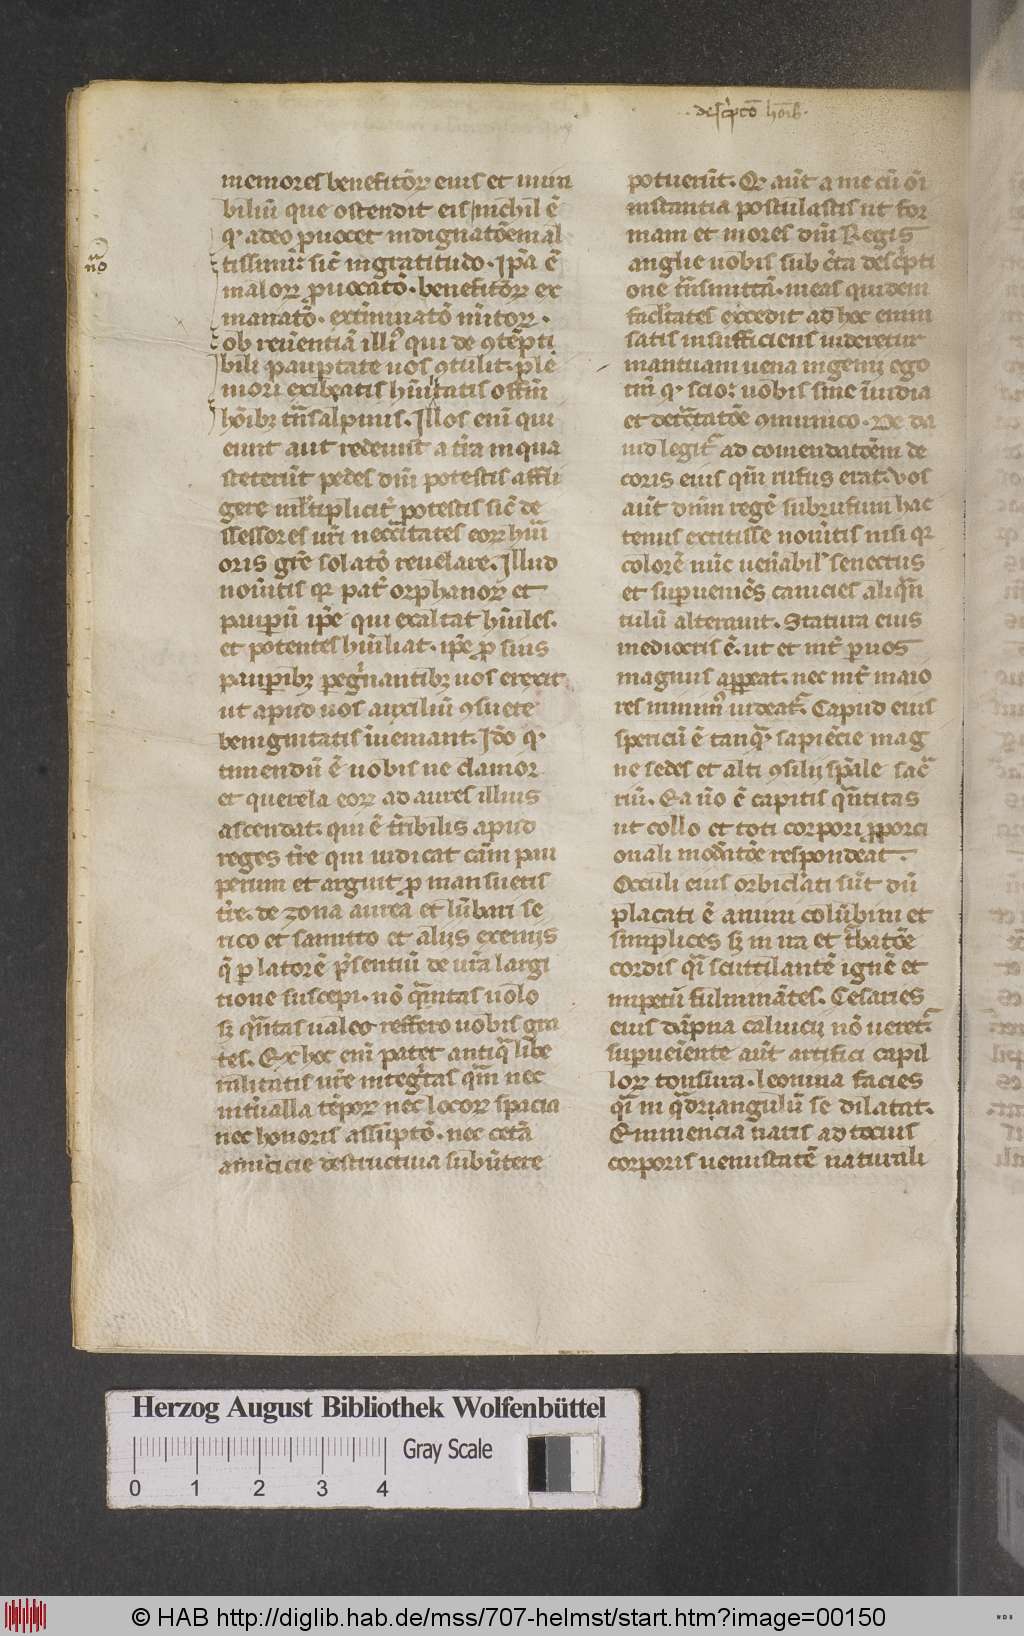 descpͥcō hōiƀ
nō
memores benefitōꝝ eius et mira
biliū que ostendit eis nichil ē
qͥ adeo ꝓuocet indignatōem al
tissimi: sic̄ ingratitudo. ip̄a ē
maloꝝ ꝓuocatō. benefitōꝝ ex
inanatō. ext̄minatō m̄itoꝝ.
ob reu̓entiā illiꝰ qui de ꝯtēpti
bili paup̲tate uos ꝯtulit. ple
niori exibeatis hūitatis offm̄
hōibꝫ tn̄salpinis. Illos eni qui
eunt aut redeunt a t̓ra in qua
steterūt pedes dn̄i potestis affli
gere ml̓tiplicit̓ potestis sic̄ de
ssessores uri necc̄itates eoꝝ hūi
oris gr̄e solatō reuelare. Illud
nou̓itis qꝫ pat̓ orphanoꝝ et
paup̲ū ip̄e qui exaltat hūiles.
et potentes hūiliat. ip̄e ꝓ suis
paup̲ibꝫ pegͥnantibꝫ uos erexit
ut apud uos auxiliū ꝯsuete
benignitatis īueniant. Idō qͥ
timendū ē uobis ne clamor
et querela eoꝝ ad aures illius
ascendat. qui ē t̓ribilis apud
reges t̓re qui iudicat cām pau
perum et arguit ꝓ mansuetis
t̓re. de zona aurea et lūbari se
rico et samitto et alijs exenijs
q̄ p̲ latorē p̄sentiū de ur̄a largi
tione suscepi. nō qͣntas uolo
sꝫ qͣntas ualeo reffero uobis gra
tes. Ex hoc eni patet antiqͣ libe
ralitatis ur̄e integͥtas qm̄ nec
int̓ualla tēpoꝝ nec locoꝝ spacia
nec honoris assūptō. nec cet̓a
amicicie destructiua subūtere
potuerūt. Qꝫ aūt a me cū oī
instantia postulastis ut for
mam et mores dn̄i Regis
anglie uobis sub c̓ta desc̓pti
one tn̄smittā. meas quidem
facl̓tates excedit ad hoc enim
satis insufficiens uideretur
mantuani uena ingenij ego
tn̄ qͥ scio: uobis sine īuidia
et det̓ctatōe ꝯmunico. De da
uid legit̓ ad cōmendatōem de
coris eius qm̄ rufus erat. vos
aūt dnm regē subrufum hac
tenus extitisse nou̓itis nisi qꝫ
colorē nūc uen̓abilͥ senectus
et supueniēs canicies aliqͣn
tulū alterauit. Statura eius
mediocris ē. ut et int̓ p̲uos
magnus appeat. nec int̓ maio
res minimꝰ uideat̓. Capud eius
spericū ē tanqͣ sapiēcie mag
ne sedes et alti ꝯsilij sp̄ale sac̄
riū. Ea u̓o ē capitis qͣntitas
ut collo et toti corpori ꝓporci
onali mod̓atōe respondeat.
Occuli eius orbiclati sūt dū
placati ē animi colūbini et
simplices sꝫ in ira et t̓batōe
cordis qͣi scītilantē ignē et
impetū fulminātes. Cesaries
eius dāpna caluicij nō ueret̓.
supuen̓iente aūt artifici capil
loꝝ tonsura. leonina facies
qͣi in qͣdriangulū se dilatat.
Eminencia naris ad tocius
corporis uenustatē naturali
Herzog August Bibliothek Wolfenbüttel
Gray Scale
0 1 2 3 4
© HAB http://diglib.hab.de/mss/707-helmst/start.htm?image=00150